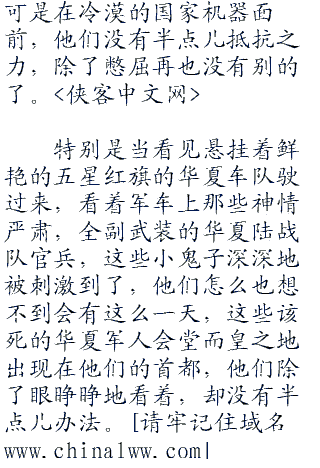 可是在冷漠的国家机器面
前，他们没有半点儿抵抗之
力，除了憋屈再也没有别的
了。<侠客中文网>
特别是当看见悬挂着鲜
艳的五星红旗的华夏车队驶
过来，看着军车上那些神情
严肃，全副武装的华夏陆战
队官兵，这些小鬼子深深地
被刺激到了，他们怎么也想
不到会有这么一天，这些该
死的华夏军人会堂而皇之地
出现在他们的首都，他们除
了眼睁睁地看着，却没有半
点儿办法。[请牢记住域名
www.china1ww.com|